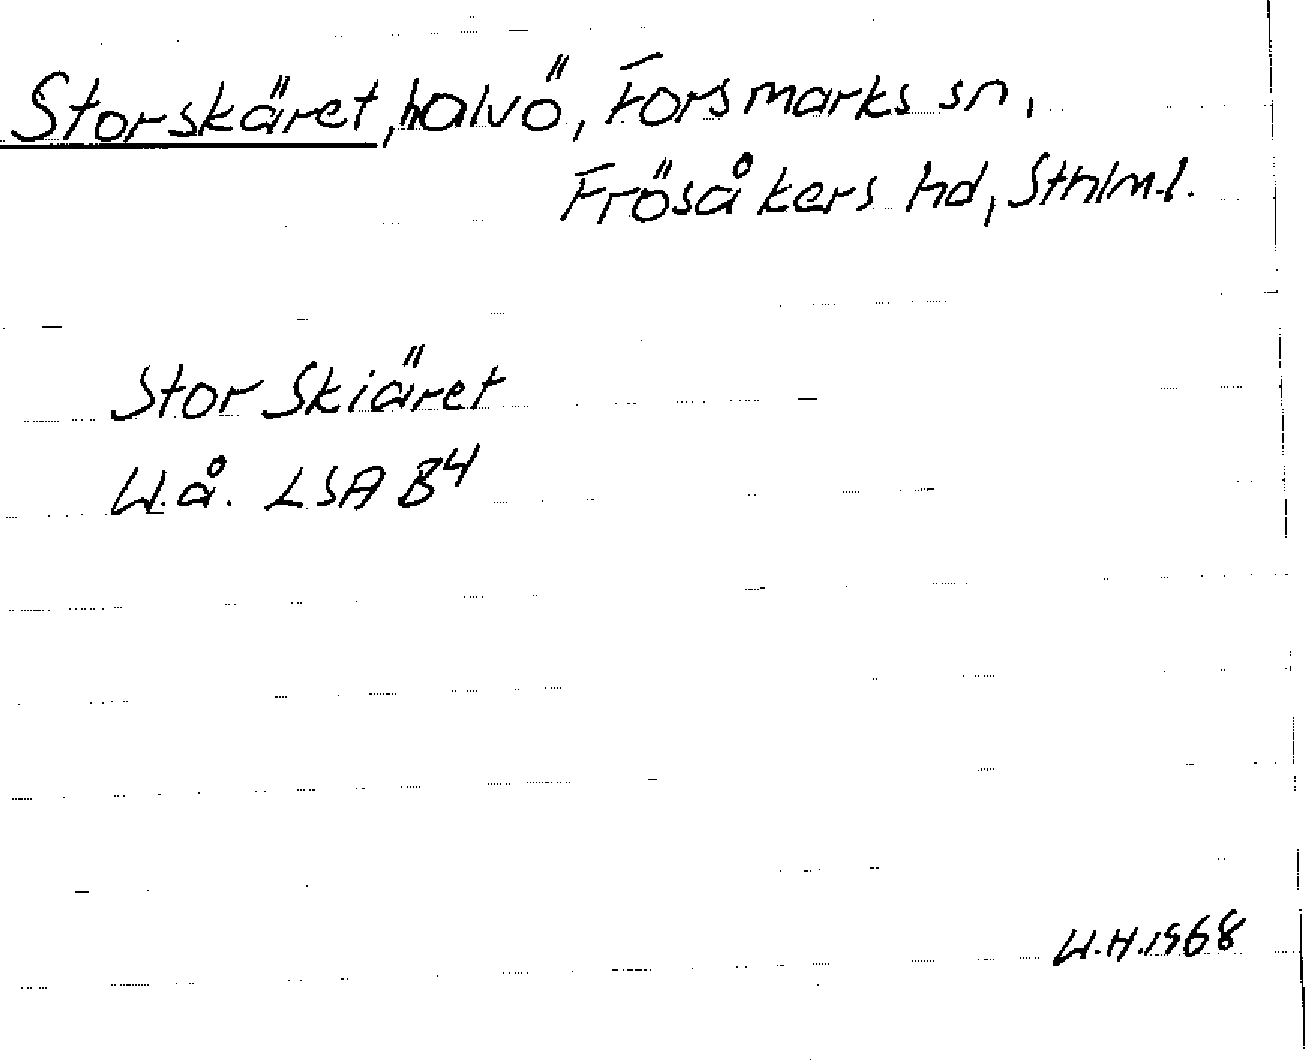 Storskäret, halvö, Forsmarks sn,
Frösåkers hd, Sthlm.l.
Stor Skiäret
U.å. LSA B4
U.H.1968